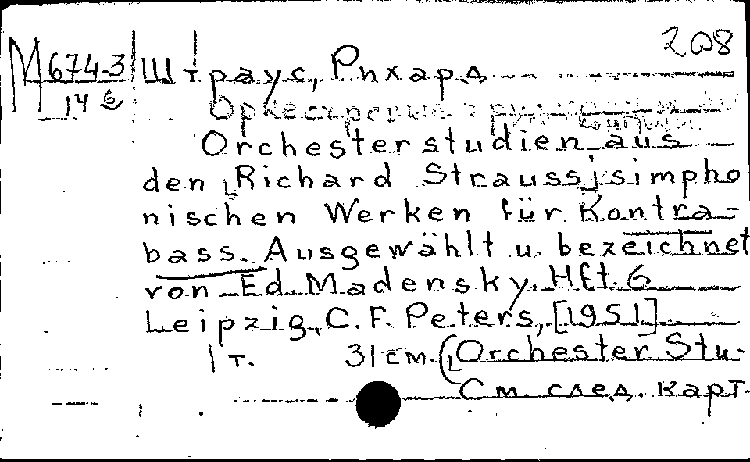 208
М 674-3 Штраус, Рихард
14
Оркестровые трудности
Orchesterstudien aus
den [Richard Strauss] simpho
nischen Werken für Kontra-
bass. Ausgewählt u. bezeichnet
von Ed. Madensky. Hft. 6
Leipzig, C. F. Peters, [1951]
1 т. 31 см. (Orchester Stu-
См. след. карт.